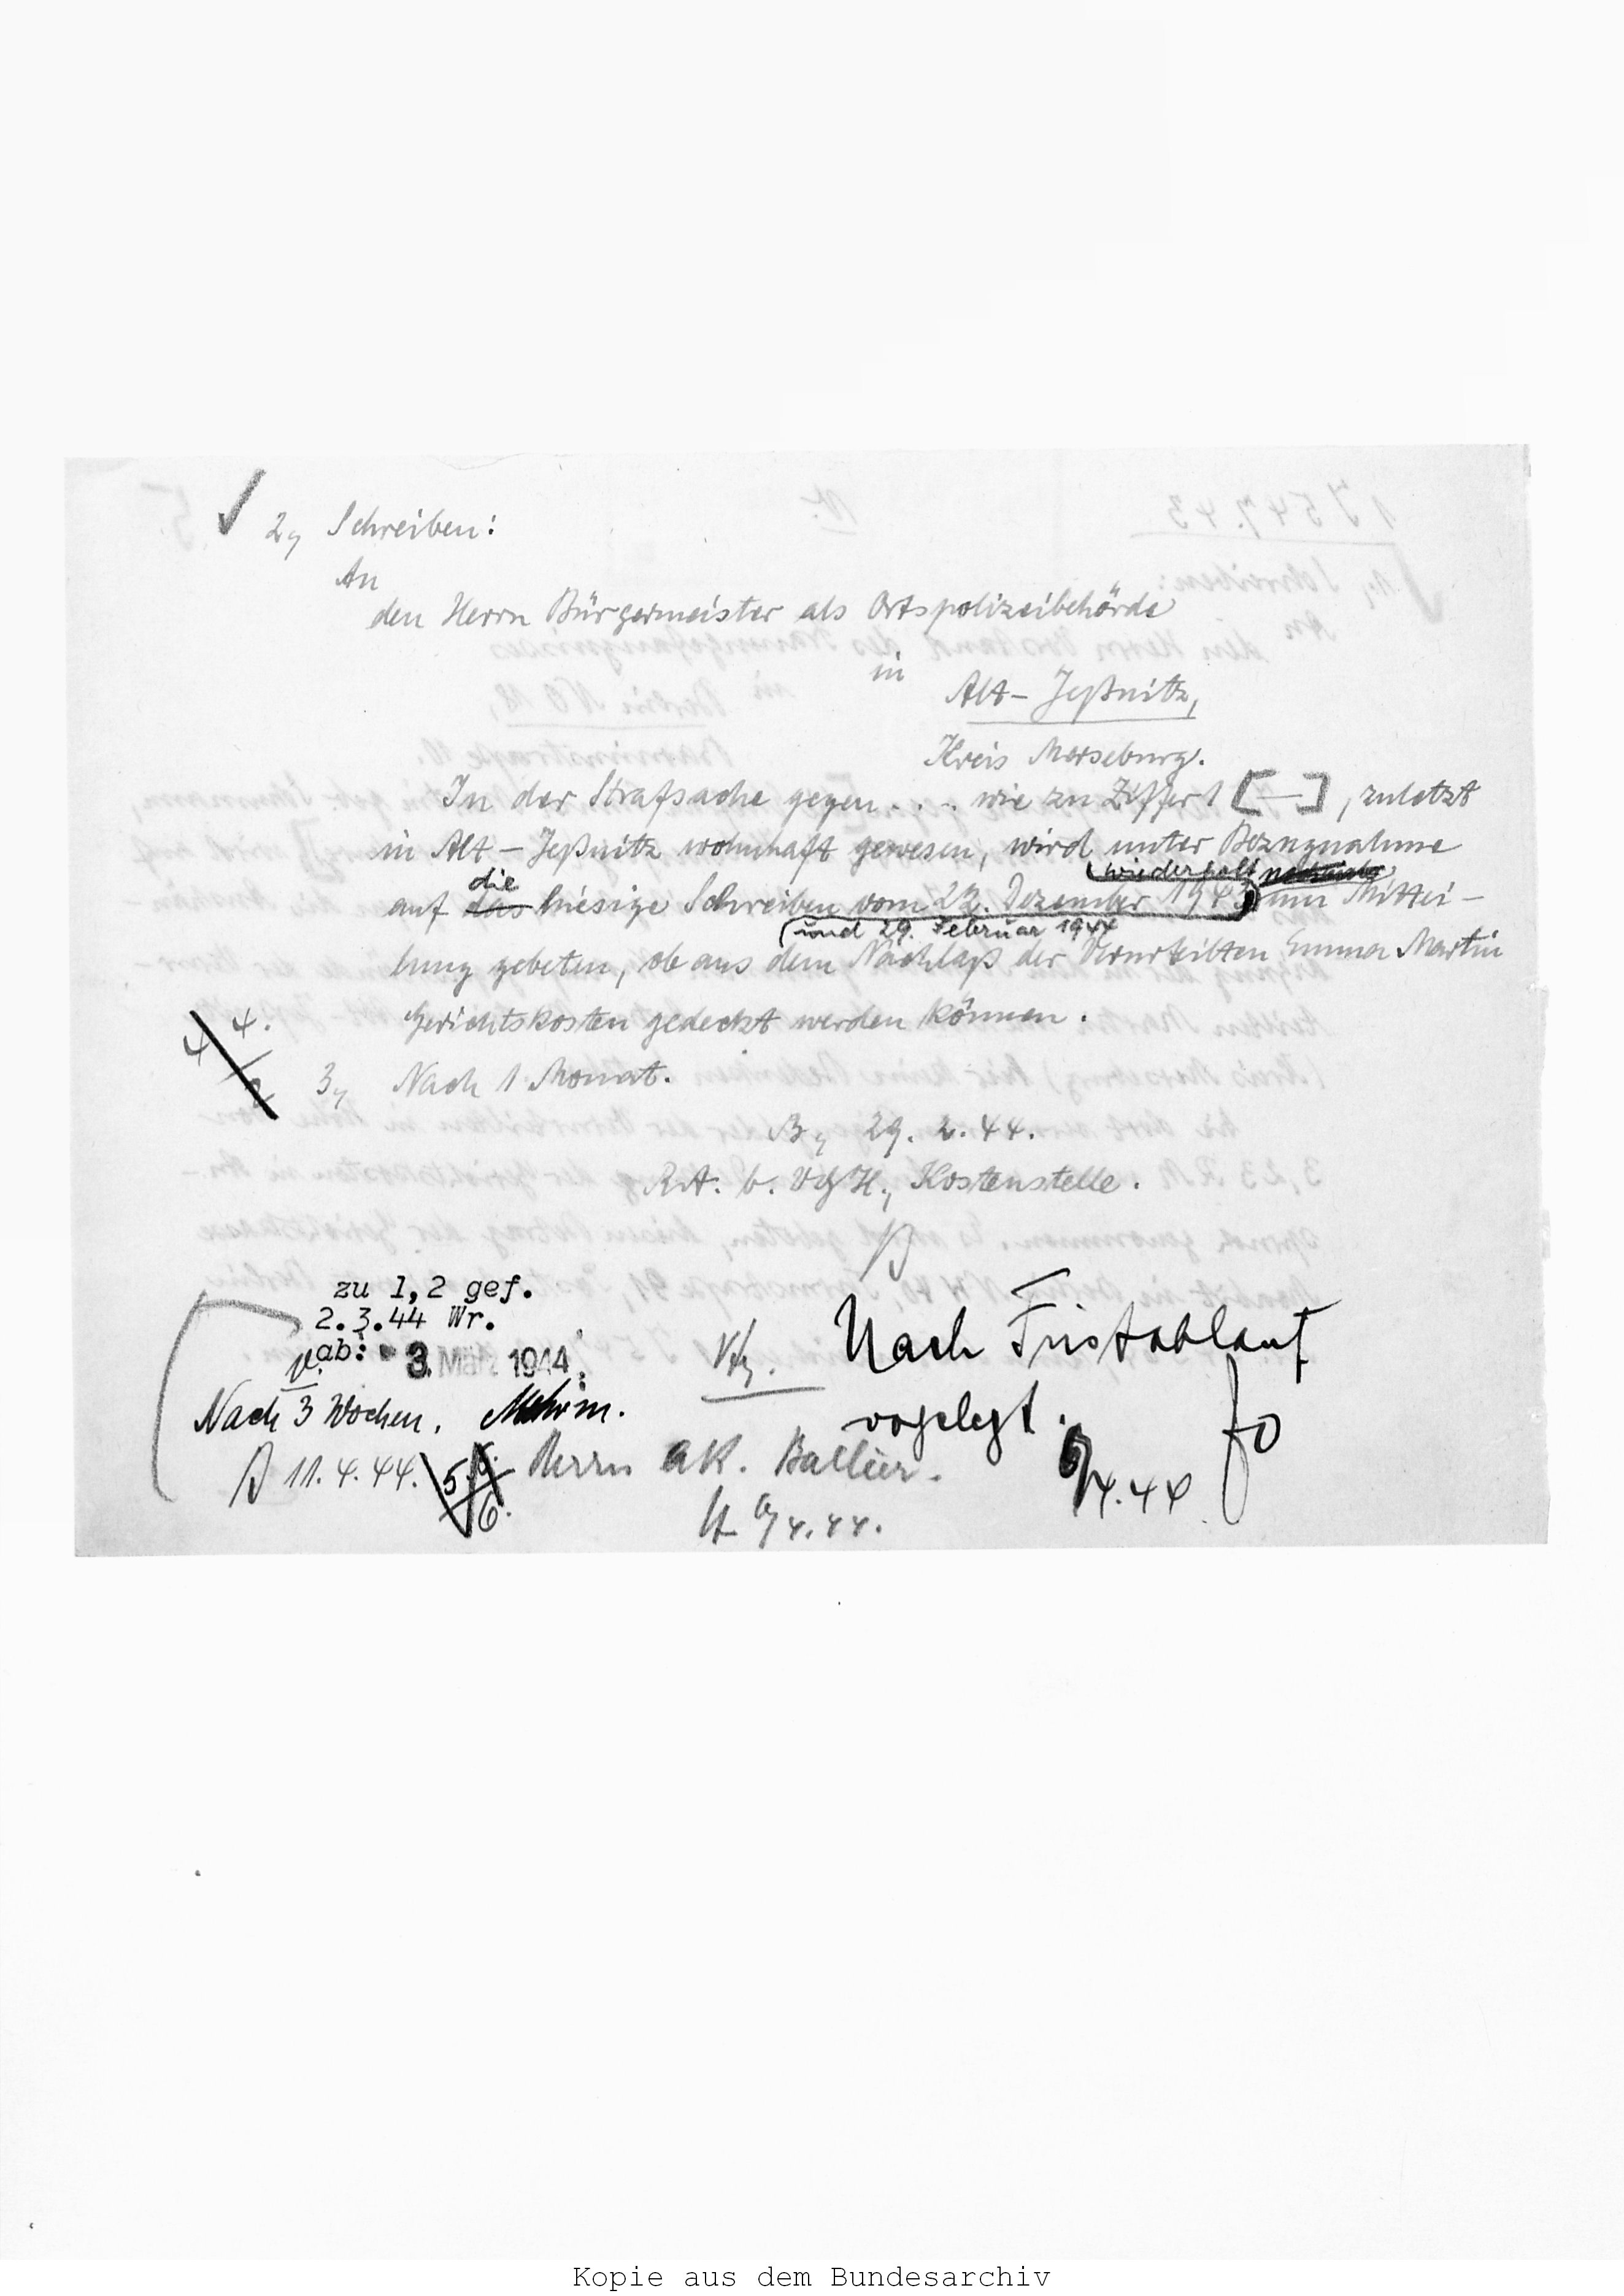 2, Schreiben:
An
den Herrn Bürgermeister als Ortspolizeibehörde
in
Alt-Jeßnitz,
Kreis Merseburg.
In der Strafsache gegen . . . . wie zu Ziffer 1 [—], zuletzt
in Alt-Jeßnitz wohnhaft gewesen, wird unter Bezugnahme
die wiederholt
auf das hiesige Schreiben vom 22. Dezember 1943 um Mittei-
und 29. Februar 1944
lung gebeten, ob aus dem Nachlaß der Verurteilten Emma Martin
Gerichtskosten gedeckt werden können.
4.
4
3, Nach 1 Monat.
B, 29. 2. 44.
R.A. b. VGH., Kostenstelle.
zu 1,2 gef.
2.3.44 Wr.
ab: 3. März 1944
v.
Vfg. Nach Fristablauf
vorgelegt.
Nach 3 Wochen.
11. 4. 44. 5. 6. Herrn AK. Ballier.
6/4.44
6/4.44.
Kopie aus dem Bundesarchiv